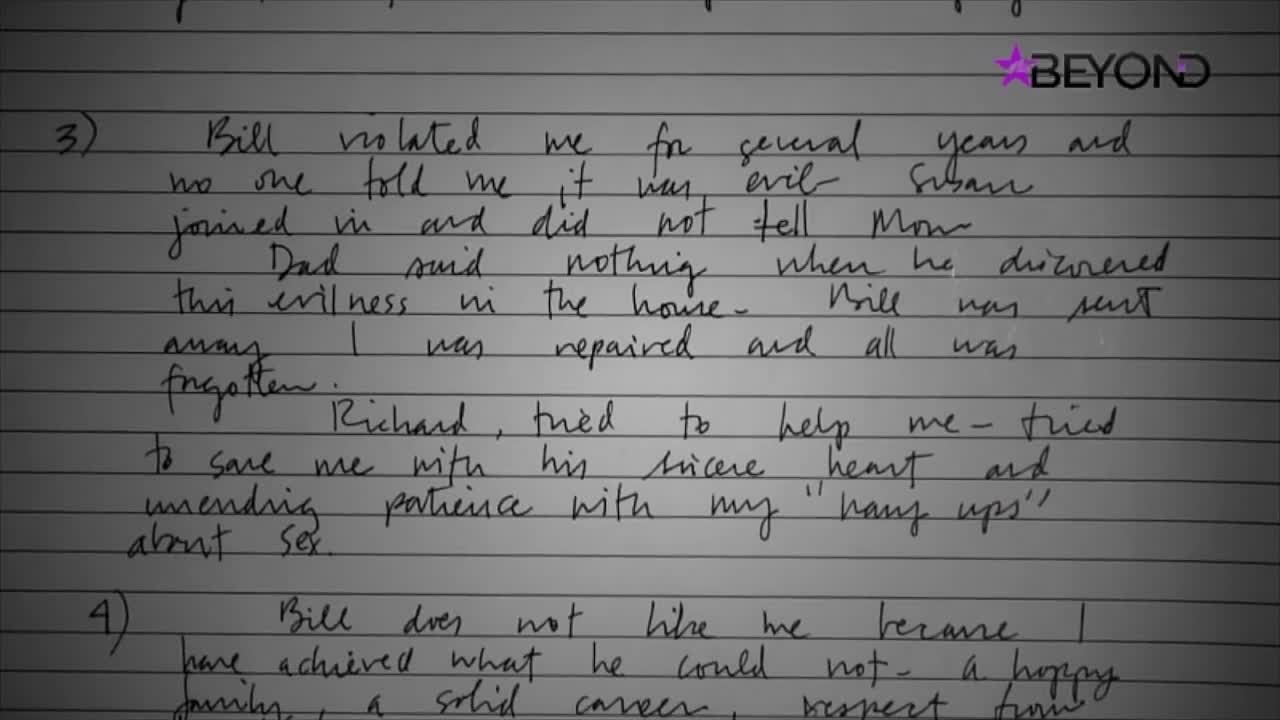 BEYOND
3) Bill violated me for several years and
no one told me it was evil- Susan
joined in and did not tell Mom
Dad said nothing when he discovered
this evilness in the house- Bill was sent
away I was repaired and all was
forgotten.
Richard, tried to help me- tried
to save me with his sincere heart and
unending patience with my "hang ups"
about sex.
4) Bill does not like me because I
have achieved what he could not- a happy
family, a solid career, respect from